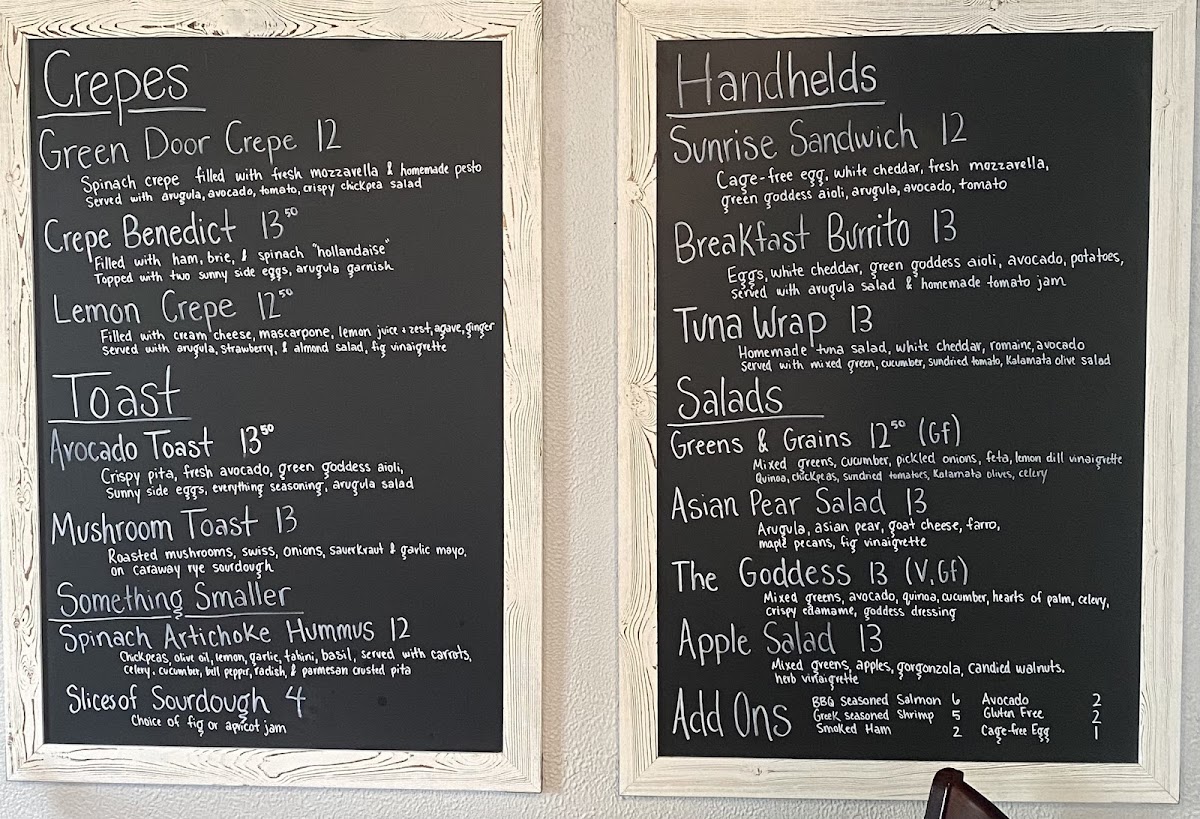 Crepes
Green Door Crepe 12
Spinach crepe filled with fresh mozzarella & homemade pesto
Served with arugula, avocado, tomato, crispy chickpea salad
Crepe Benedict 13 50
Filled with ham, brie, & spinach "hollandaise"
Topped with two sunny side eggs, arugula garnish
Lemon Crepe 12 50
Filled with cream cheese, mascarpone, lemon juice + zest, agave, ginger
Served with arugula, strawberry, & almond salad, fig vinaigrette
Toast
Avocado Toast 13 50
Crispy pita, fresh avocado, green goddess aioli,
Sunny side eggs, everything seasoning, arugula salad
Mushroom Toast 13
Roasted mushrooms, swiss, onions, sauerkraut & garlic mayo,
on caraway rye sourdough
Something Smaller
Spinach Artichoke Hummus 12
Chickpeas, olive oil, lemon, garlic, tahini, basil, served with carrots,
celery, cucumber, bell pepper, radish, & parmesan crusted pita
Slices of Sourdough 4
Choice of fig or apricot jam
Handhelds
Sunrise Sandwich 12
Cage-free egg, white cheddar, fresh mozzarella,
green goddess aioli, arugula, avocado, tomato
Breakfast Burrito 13
Eggs, white cheddar, green goddess aioli, avocado, potatoes,
Served with arugula salad & homemade tomato jam
Tuna Wrap 13
Homemade tuna salad, white cheddar, romaine, avocado
Served with mixed green, cucumber, sundried tomato, Kalamata olive salad
Salads
Greens & Grains 12 50 (Gf)
Mixed greens, cucumber, pickled onions, feta, lemon dill vinaigrette
Quinoa, chickpeas, sundried tomatoes, Kalamata olives, celery
Asian Pear Salad 13
Arugula, asian pear, goat cheese, farro,
maple pecans, fig vinaigrette
The Goddess 13 (V, Gf)
Mixed greens, avocado, quinoa, cucumber, hearts of palm, celery,
crispy edamame, goddess dressing
Apple Salad 13
Mixed greens, apples, gorgonzola, candied walnuts.
herb vinaigrette
Add Ons
BBQ Seasoned Salmon 6 Avocado 2
Greek seasoned Shrimp 5 Gluten Free 2
Smoked Ham 2 Cage-free Egg 1